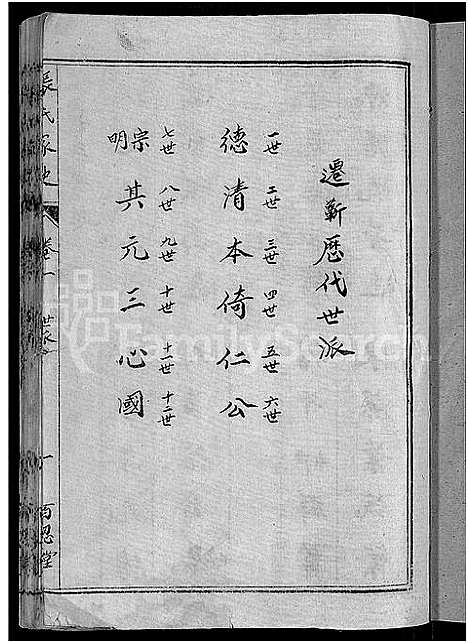 遷蘄歷代世派
一世 二世 三世 四世 五世 六世
德 清 本 倚 仁 公
七世 八世 九世 十世 十一世 十二世
宗明 其 元 三 心 國
張氏家史
卷一
世派
一
百忍堂
FamilySearch